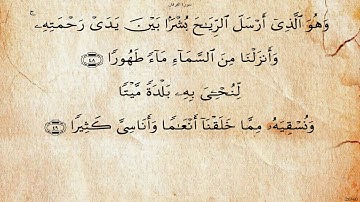 سورة الفرقان
وَهُوَ ٱلَّذِىٓ أَرْسَلَ ٱلرِّيَٰحَ بُشْرًۢا بَيْنَ يَدَىْ رَحْمَتِهِۦ ۚ
وَأَنزَلْنَا مِنَ ٱلسَّمَآءِ مَآءً طَهُورًا ﴿٤٨﴾
لِّنُحْـِۧىَ بِهِۦ بَلْدَةً مَّيْتًا
وَنُسْقِيَهُۥ مِمَّا خَلَقْنَآ أَنْعَٰمًا وَأَنَاسِىَّ كَثِيرًا ﴿٤٩﴾